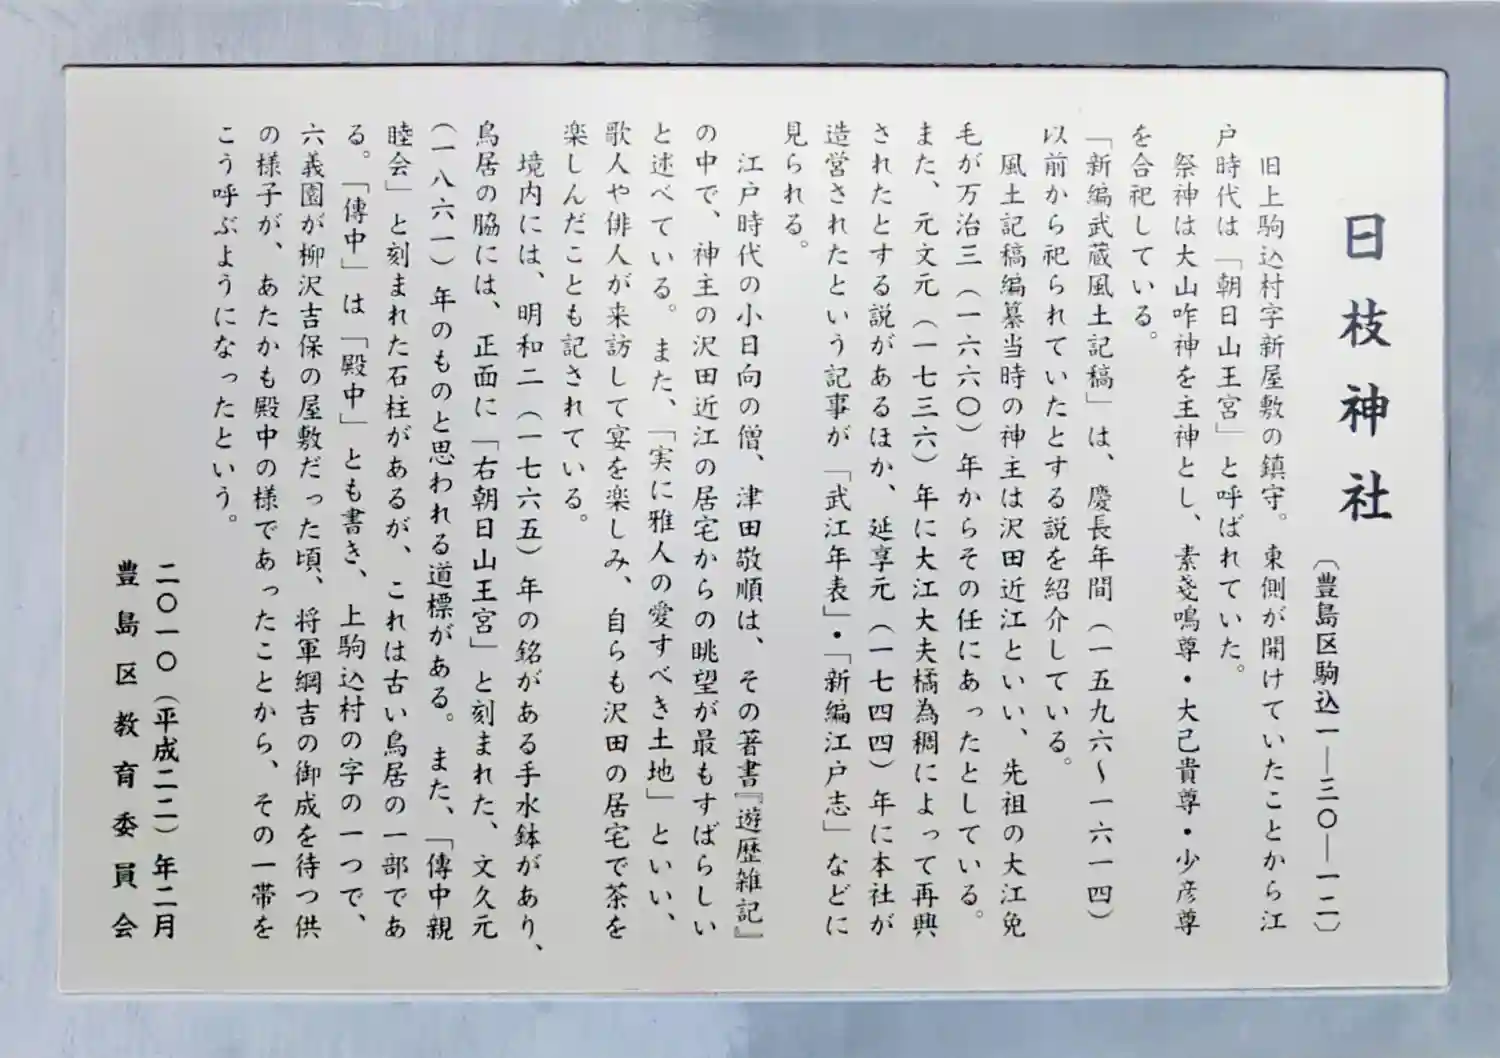 日枝神社
(豊島区駒込一―三〇―一二)
旧上駒込村字新屋敷の鎮守。東側が開けていたことから江
戸時代は「朝日山王宮」と呼ばれていた。
祭神は大山咋神を主神とし、素戔鳴尊・大己貴尊・少彦尊
を合祀している。
「新編武蔵風土記稿」は、慶長年間(一五九六〜一六一四)
以前から祀られていたとする説を紹介している。
風土記稿編纂当時の神主は沢田近江といい、先祖の大江免
毛が万治三(一六六〇)年からその任にあったとしている。
また、元文元(一七三六)年に大江大夫橘為稠によって再興
されたとする説があるほか、延享元(一七四四)年に本社が
造営されたという記事が「武江年表」・「新編江戸志」などに
見られる。
江戸時代の小日向の僧、津田敬順は、その著書『遊歴雑記』
の中で、神主の沢田近江の居宅からの眺望が最もすばらしい
と述べている。また、「実に雅人の愛すべき土地」といい、
歌人や俳人が来訪して宴を楽しみ、自らも沢田の居宅で茶を
楽しんだことも記されている。
境内には、明和二(一七六五)年の銘がある手水鉢があり、
鳥居の脇には、正面に「右朝日山王宮」と刻まれた、文久元
(一八六一)年のものと思われる道標がある。また、「傳中親
睦会」と刻まれた石柱があるが、これは古い鳥居の一部であ
る。「傳中」は「殿中」とも書き、上駒込村の字の一つで、
六義園が柳沢吉保の屋敷だった頃、将軍綱吉の御成を待つ供
の様子が、あたかも殿中の様であったことから、その一帯を
こう呼ぶようになったという。
二〇一〇(平成二二)年二月
豊島区教育委員会